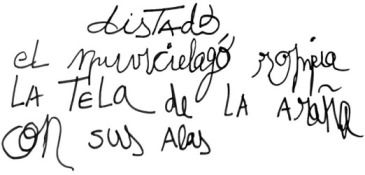 distado,
el murcielago, rompia
LA TeLA de LA Araña
con sus Alas